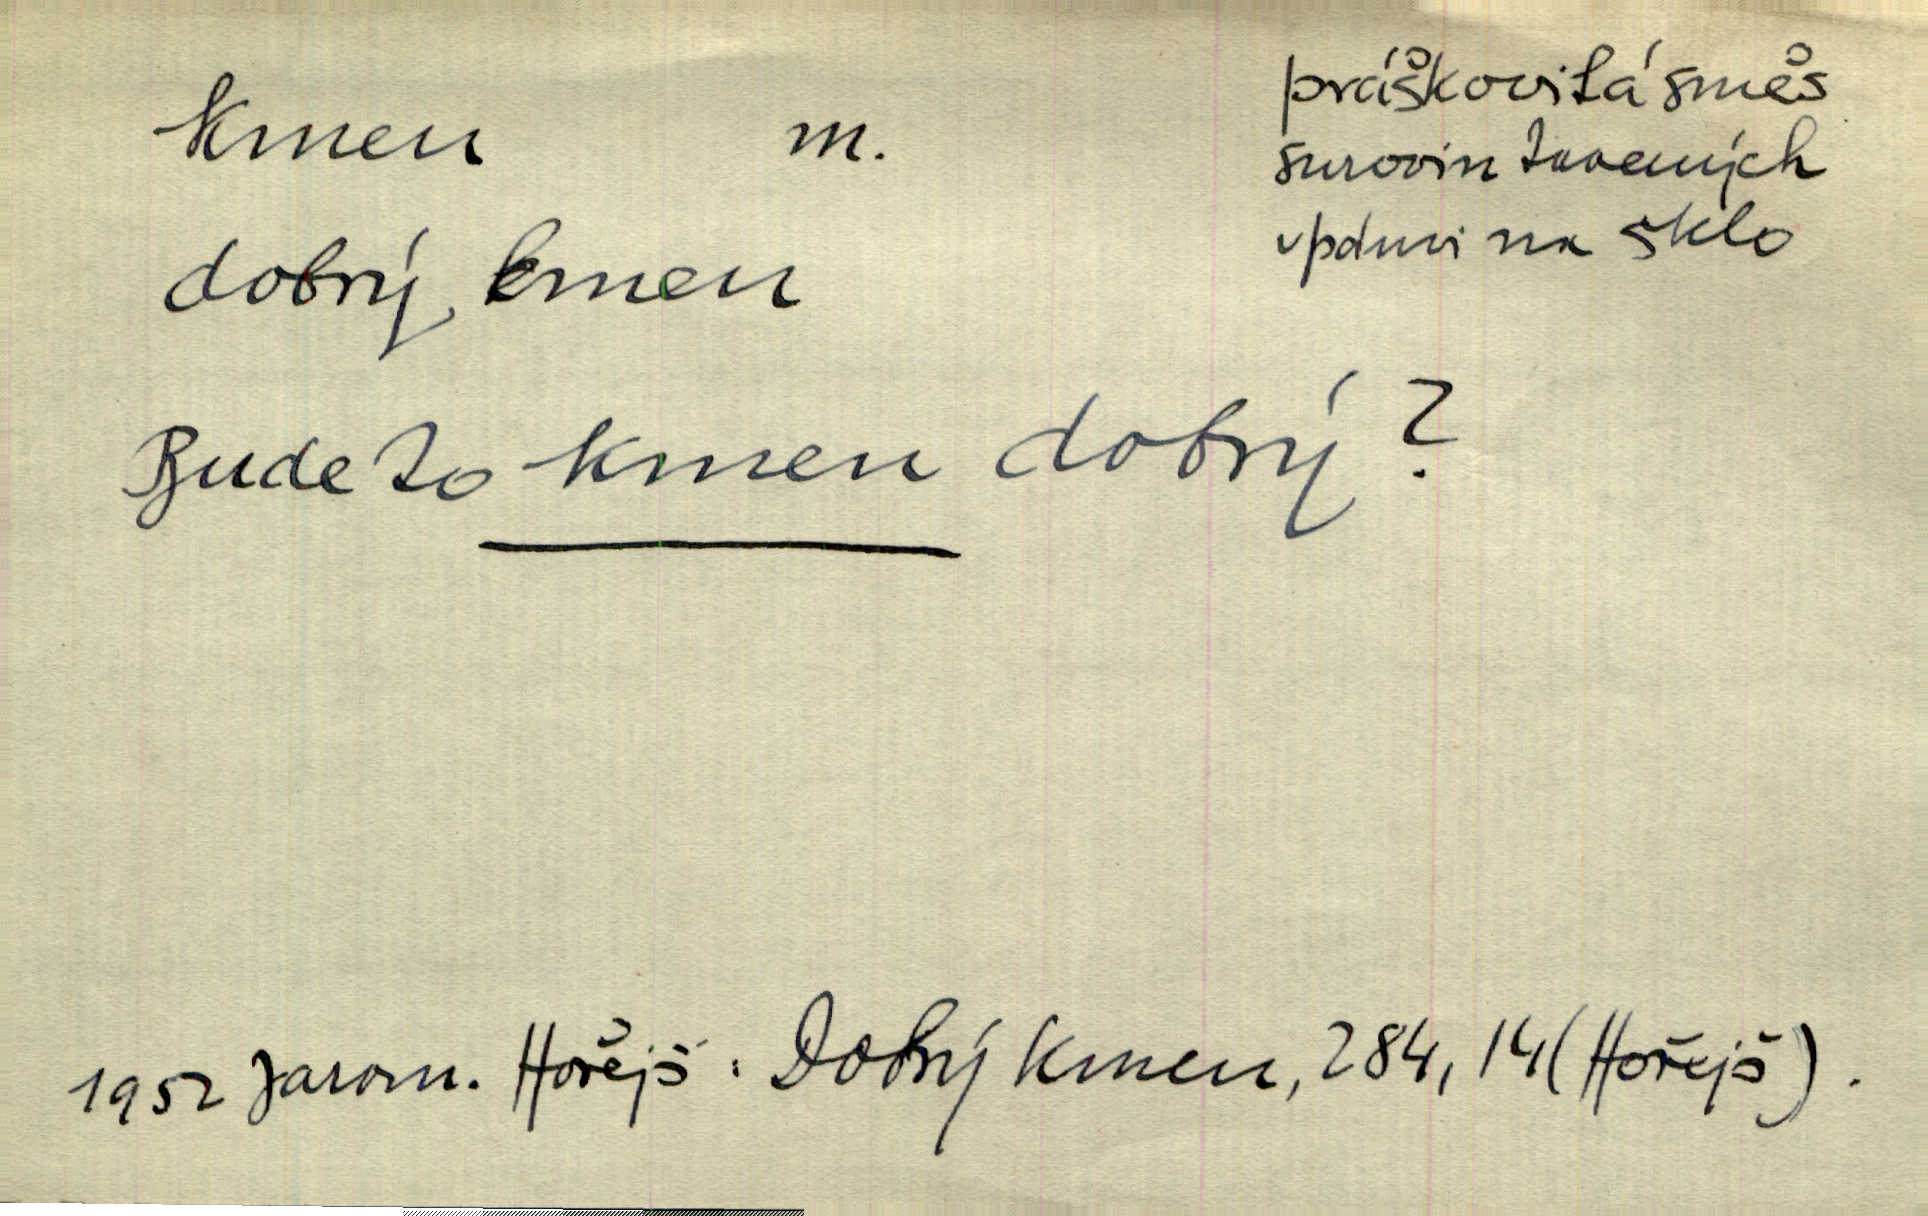 kmen m. práškovitá směs
surovin tavených
v pánvi na sklo
dobrý kmen
Bude to kmen dobrý?
1952 Jarom. Hořejš: Dobrý kmen, 284, 14 (Hořejš).